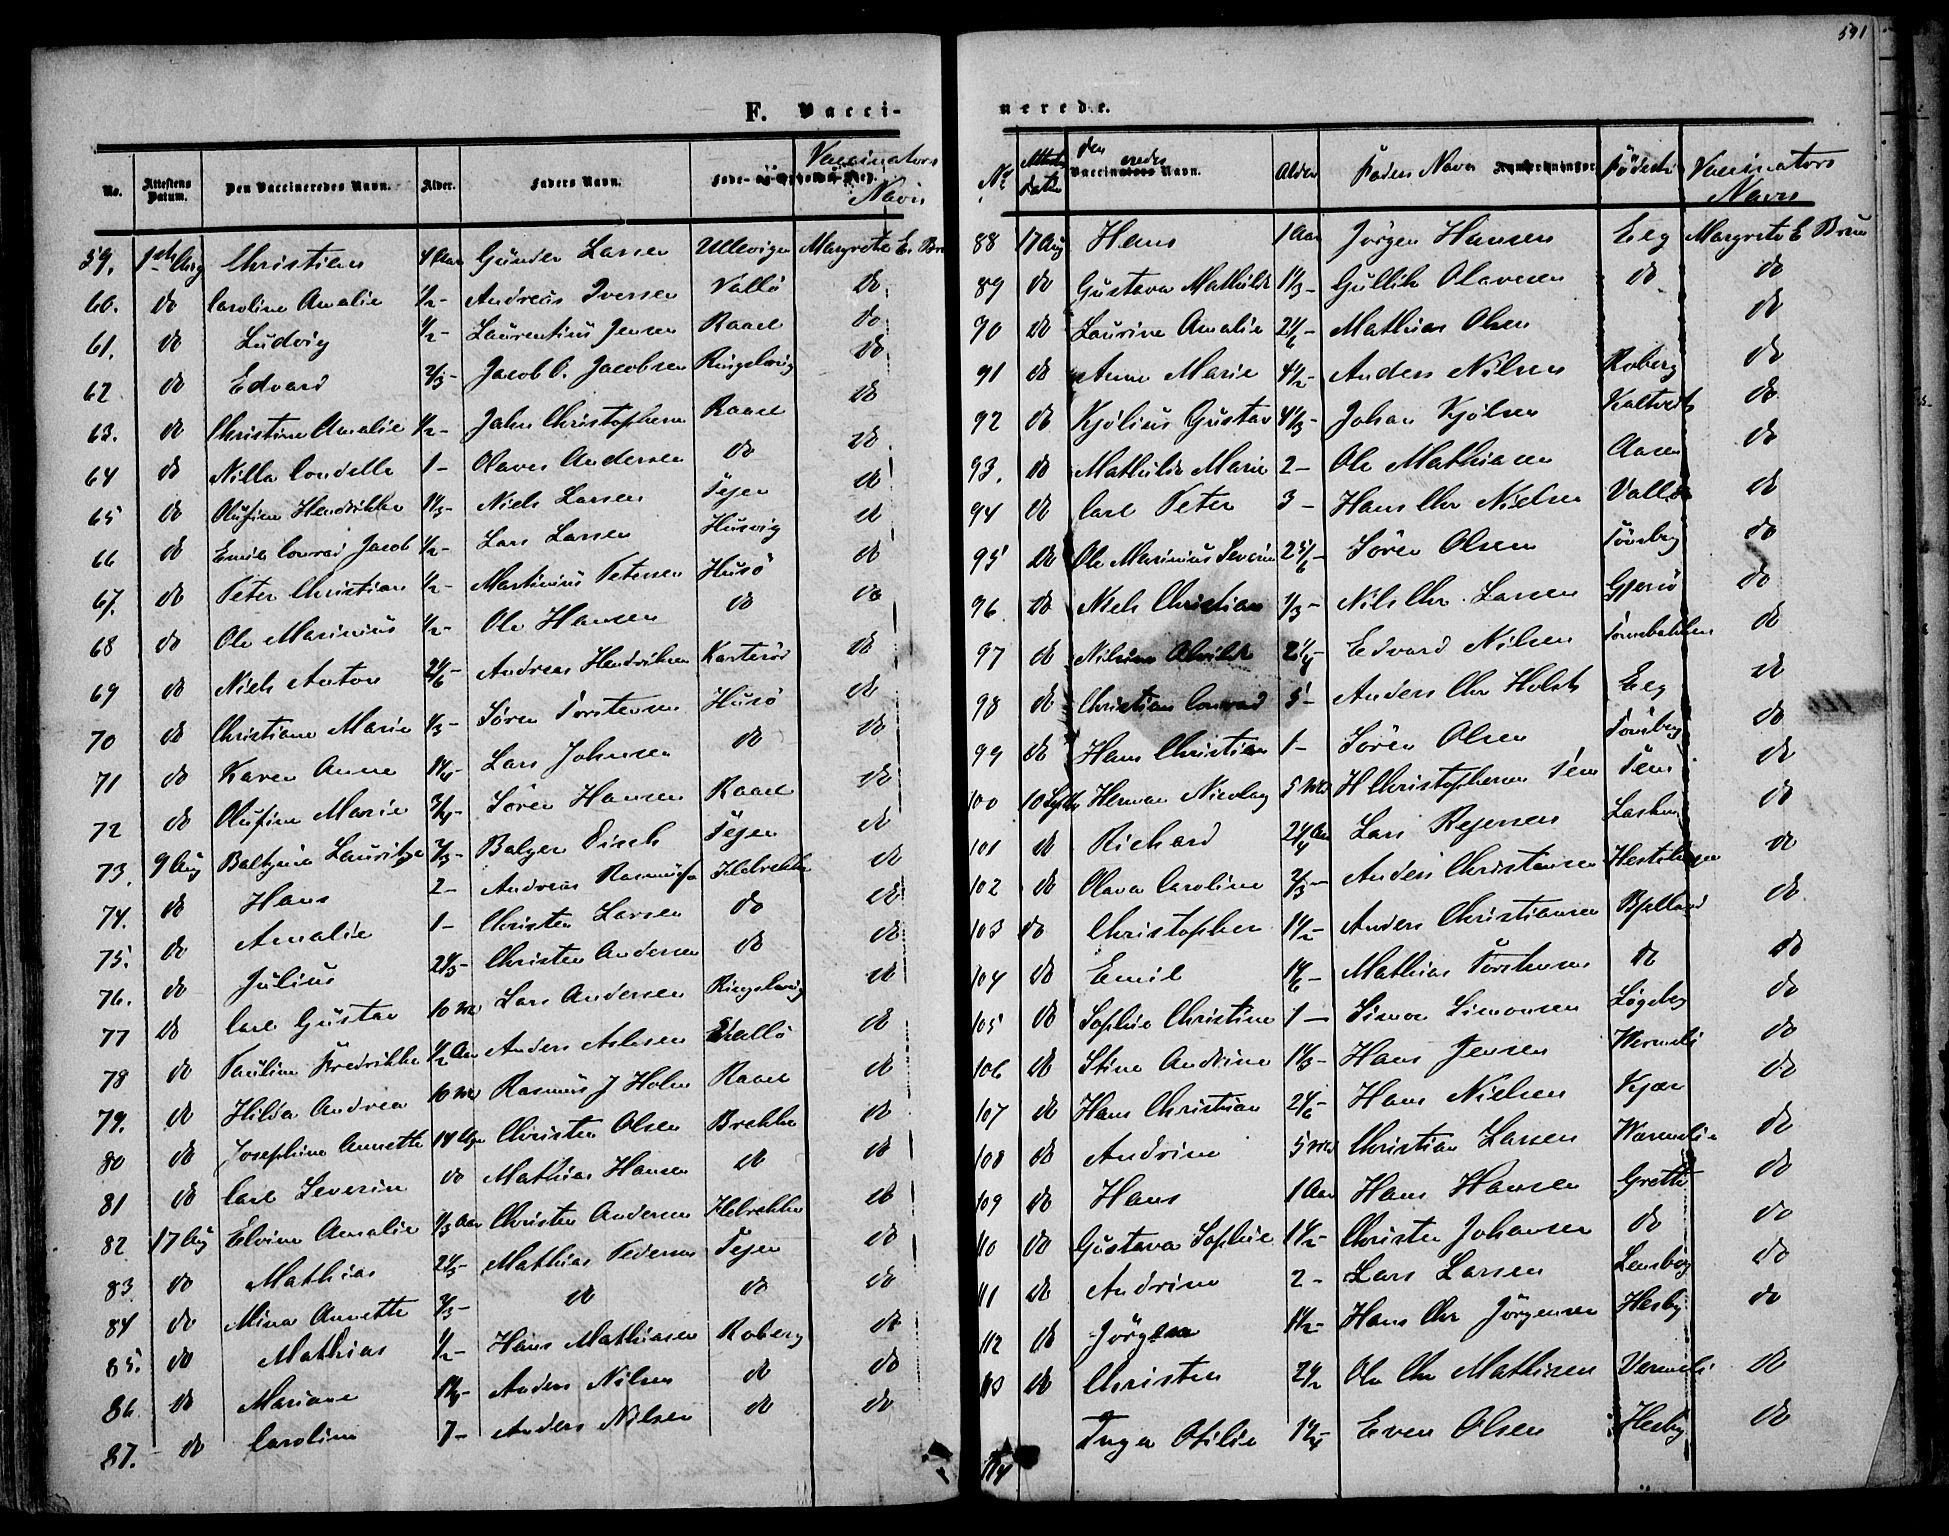 591
F. Vacci-
nerede.
No. Attestens Datum. Den Vaccineredes Navn. Alder. Faders Navn. Føde- og Opholds-Sted. Vaccinators Navn
59. 1ste Aug Christian 4 Aar Gunder Larsen Ullevigen Margrete E. Bru
60. do Caroline Amalie 1/2 - Andreas Iversen Vallö do
61. do Ludvig 1/2 - Laurentius Jensen Raael do
62 do Edvard 2/3 - Jacob C. Jacobsen Ringshoug do
63. do Christine Amalie 1/2 - John Christophersen Raael do
64 do Nilla Condelle 1 - Olaves Andersen do do
65 do Olufine Hendrikke 1 1/3 - Niels Larsen Tejen do
66 do Emil Conrad Jacob 1/2 - Lars Larsen Husvig do
67. do Peter Christian 1/2 - Martinius Petersen Husö do
68 do Ole Marinius 1/2 - Ole Hansen do do
69 do Niels Anton 2 1/6 - Andreas Hendriksen Karterød do
70 do Christiane Marie 1/3 - Sören Torstensen Husö do
71 do Karen Anne 1 1/6 - Lars Johnsen do do
72 do Olufine Marie 3/4 - Sören Hansen Raael do
73. 9 Aug Baltzine Lauritze 2/3 - Balzer Disch Tejen do
74. do Hans 2 - Andreas Rasmusen Ilebrekke do
75. do Amalie 1 - Christen Larsen do do
76. do Julius 2 1/3 - Christen Andersen do do
77 do Carl Gustav 10 Md Lars Andersen Ringshoug do
78 do Pauline Fredrikke 1/2 Aar Anders Aslesen Vallö do
79. do Hilda Andrea 10 Md Rasmus J Holm Raael do
80 do Josephine Annette 14 Uger Christen Olsen Brekke do
81 do Carl Severin do Mathias Hansen do do
82 17 Aug Elvine Amalie 1/3 Aar Christen Andersen Ilebrekke do
83. do Mathias 2 1/3 - Mathias Pedersen Tejen do
84 do Mina Annette 2/3 - do do do
85. do Mathias 1/2 - Hans Mathiasen Roberg do
86. do Mariane Anders Nilsen do do
87. do Caroline 7 - Anders Nilsen do do
No Attest Datum den Vaccineredes Navn. Alder Faders Navn Anmerkninger. Födested Vaccinators Navn
88 17 Aug Hans 1 Aar Jörgen Hansen Eeg Margrete E Bruu
89 do Gustava Mathilde 1 1/3 - Gullik Olavesen do do
90 do Laurine Amalie 2 1/6 - Mathias Olsen do
91 do Anne Marie 4 1/2 - Anders Nilsen Roberg do
92 do Kjölius Gustav 4 1/3 - Johan Kjölsen Kaltvedt do
93. do Mathilde Marie 2 - Ole Mathiasen Aasen do
94 do Carl Peter 3 - Hans Chr Nielsen Vallö do
95 do Ole Marinius Severin 2 5/6 - Sören Olsen Tönsberg do
96 do Niels Christian 1/3 - Nils Chr. Larsen Gjersö do
97 do Nilsine Alvilde 2 1/4 Edvard Nilsen do
98 do Christian Conrad 5 - Anders Chr Holst Eeg do
99 do Hans Christian 1 - Sören Olsen Tönsberg do
100 10 Septb Herman Nicolay 5 Md H Christophersen Tem Tem do
101 do Richard 2 1/4 Aar Lars Rejersen do
102 do Olava Caroline 2/3 - Anders Christensen do
103 do Christopher 1 1/2 - Anders Christiansen Bjelland do
104 do Emil 1 1/6 - Mathias Torstensen do do
105 do Sophie Christine 1 - Simon Simonsen Lögeberg do
106 do Stine Andrine 1 1/3 - Hans Jensen Wermeli do
107 do Hans Christian 2 1/6 - Hans Nielsen Kjær do
108 do Andrine 5 Md Christian Larsen Wærmelie do
109 do Hans 1 Aar Hans Hansen Grette do
110 do Gustava Sophie 1 1/2 - Christen Johansen do do
111 do Andrine 2 - Lars Larsen Lensberg do
112 do Jörgen 1 1/2 - Hans Chr Jörgensen Hesby do
113 do Christen 2 1/2 Ole Chr Mathisen Vermeli do
114 Inga Otilie 1 1/4 Even Olsen Hesby do